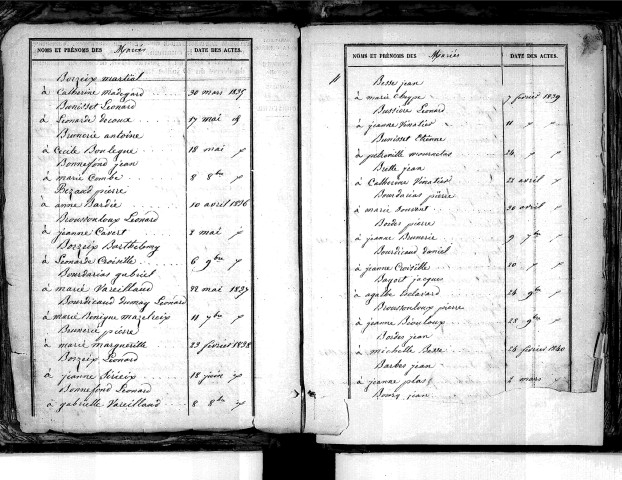 NOMS ET PRÉNOMS DES Mariés DATE DES ACTES.
Borzeix martial
à Catherine Madegard 30 mars 1835
Bunisset Léonard
à Léonarde decoux 17 mai
Brunerie antoine
à Cecile Boulegue 18 mai
Bonnefond jean
à marie Combe 8 8bre
Bezaud pierre
à anne Bardie 10 avril 1836
Broussouloux Léonard
à jeanne Cavert 2 mai
Borzeix Barthelemy
à Léonarde Croisille 6 9bre
Bourdarias gabriel
à marie Vareilland 22 mai 1837
Bourdicaud dumay Léonard
à marie Benique mazeleux 11 7bre
Brunerie pierre
à marie marguerille 23 février 1838
Borzeix Léonard
à jeanne Sérieix 18 juin
Bonnefond Léonard
à gabrielle Vareilland 8 8bre
NOMS ET PRÉNOMS DES Mariés DATE DES ACTES.
Besse jean
à marie 7 février 1839
Bussière Léonard
à jeanne Vinatier 11
Bunisset Etienne
à petronille 24
Brette jean
à Catherine Vinatier 22 avril
Bourdarias pierre
à marie 30 avril
Bordes pierre
à jeanne Brunerie 9 7bre
Bourdicaud daniel
à jeanne Croisille 10
Bayort jacques
à agathe 24 9bre
Broussouloux pierre
à jeanne 28 9bre
Bordes jean
à michelle Besse 26 février 1840
Barbes jean
à jeanne plas 2 mars
Boury jean